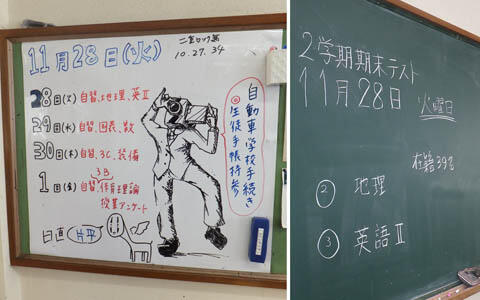 11月28日(火)
10.27.34
28日(火)自習、地理、英Ⅱ
29日(水)自習、国表、数
30日(木)自習、3C、装備
3B
1日(金)自習、体育理論
授業アンケート
日直 片平
自動車学校手続き
生徒手帳持参
2学期期末テスト
11月28日
火曜日
在籍39名
② 地理
③ 英語Ⅱ